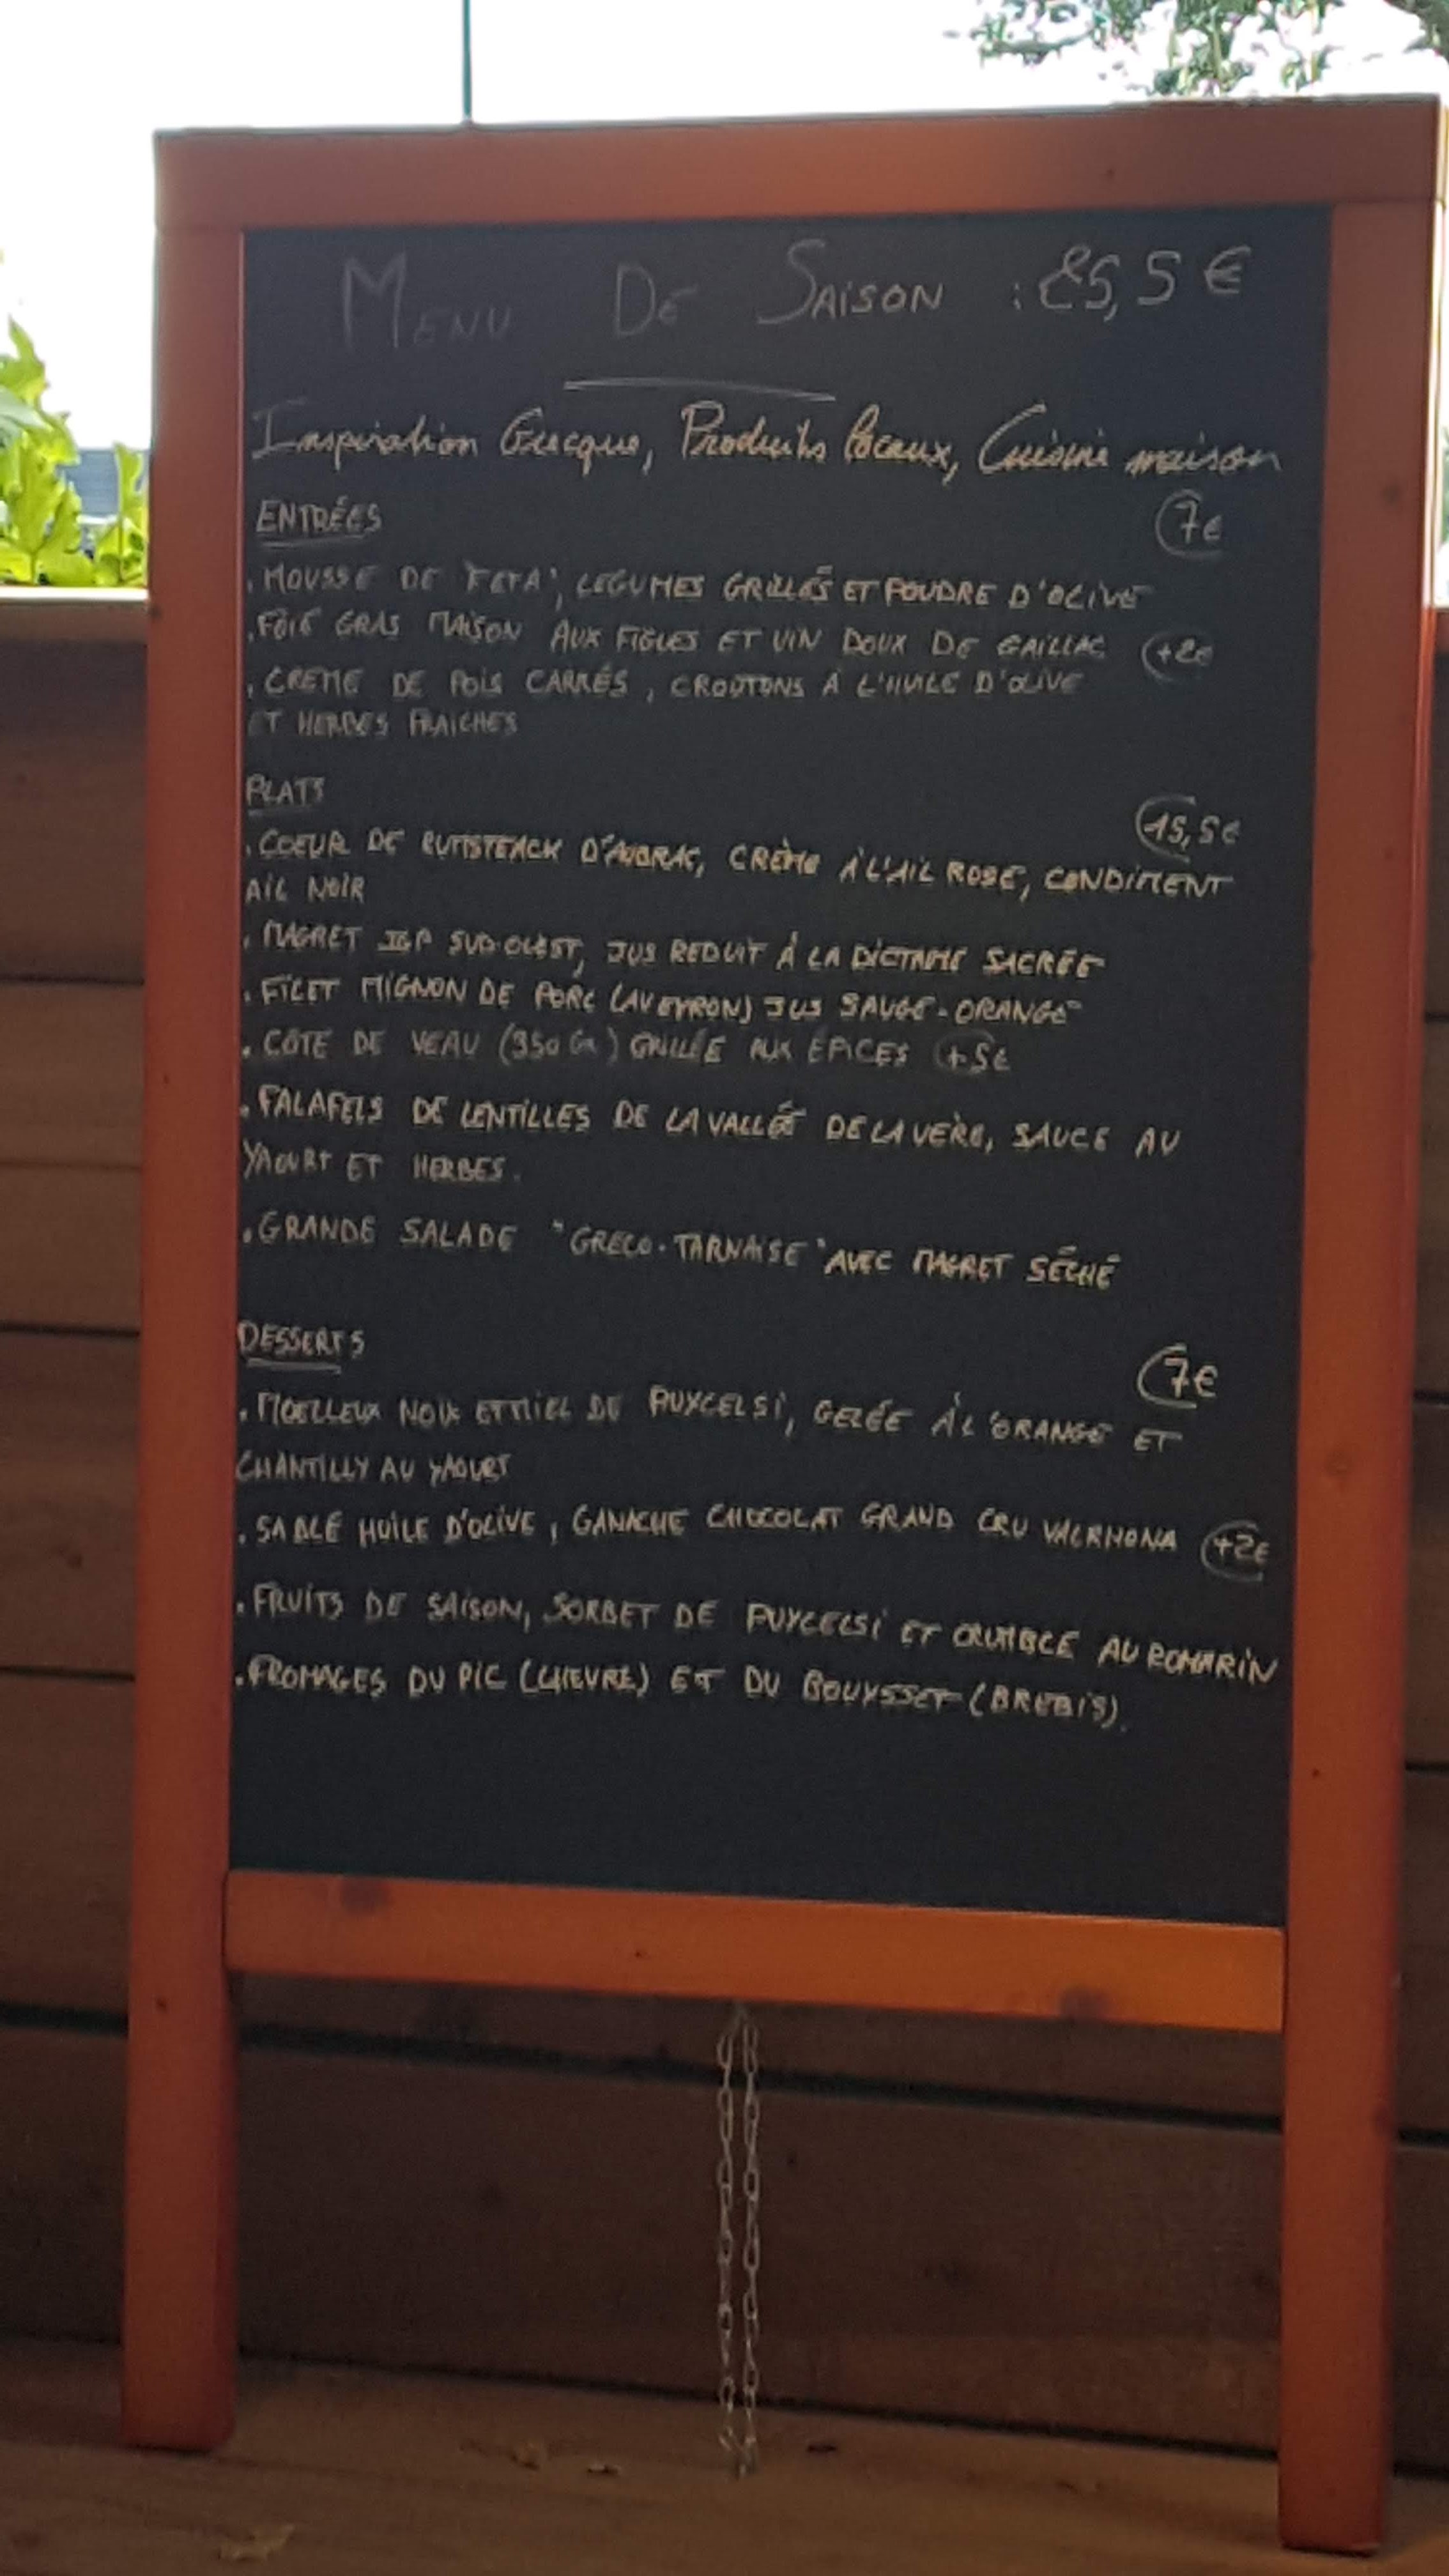 MENU DE SAISON : 25,5€
Inspiration Grecque, Produits locaux, Cuisine maison
ENTRÉES 7€
. MOUSSE DE "FETA", LEGUMES GRILLÉS ET POUDRE D'OLIVE
. FOIE GRAS MAISON AUX FIGUES ET VIN DOUX DE GAILLAC +2€
. CREME DE POIS CARRÉS, CROUTONS À L'HUILE D'OLIVE
ET HERBES FRAICHES
PLATS 15,5€
. COEUR DE RUMSTEACK D'AUBRAC, CRÈME À L'AIL ROSE, CONDIMENT
AIL NOIR
. MAGRET IGP SUD-OUEST, JUS REDUIT À LA DICTAME SACRÉE
. FILET MIGNON DE PORC (AVEYRON) JUS SAUGE-ORANGE
. COTE DE VEAU (350 Gr) GRILLÉE AUX ÉPICES +5€
. FALAFELS DE LENTILLES DE LA VALLÉE DE LA VÈRE, SAUCE AU
YAOURT ET HERBES.
. GRANDE SALADE "GRECO-TARNAISE" AVEC MAGRET SÉCHÉ
DESSERTS 7€
. MOELLEUX NOIX ET MIEL DE PUYCELSI, GELÉE À L'ORANGE ET
CHANTILLY AU YAOURT
. SABLÉ HUILE D'OLIVE, GANACHE CHOCOLAT GRAND CRU VALRHONA +2€
. FRUITS DE SAISON, SORBET DE PUYCELSI ET CRUMBLE AU ROMARIN
. FROMAGES DU PIC (CHEVRE) ET DU BOUYSSET (BREBIS).